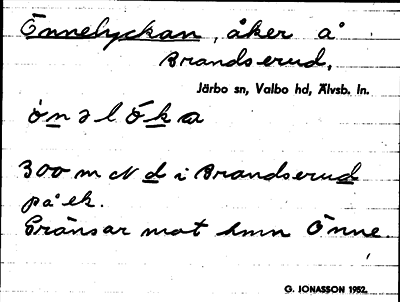 Önnelyckan, åker å
Brandserud,
Järbo sn, Valbo hd, Älvsb. ln.
ònəlóka
300 m N d i Brandserud
på ek.
Gränsar mot hmn Önne.
G. JONASSON 1952.